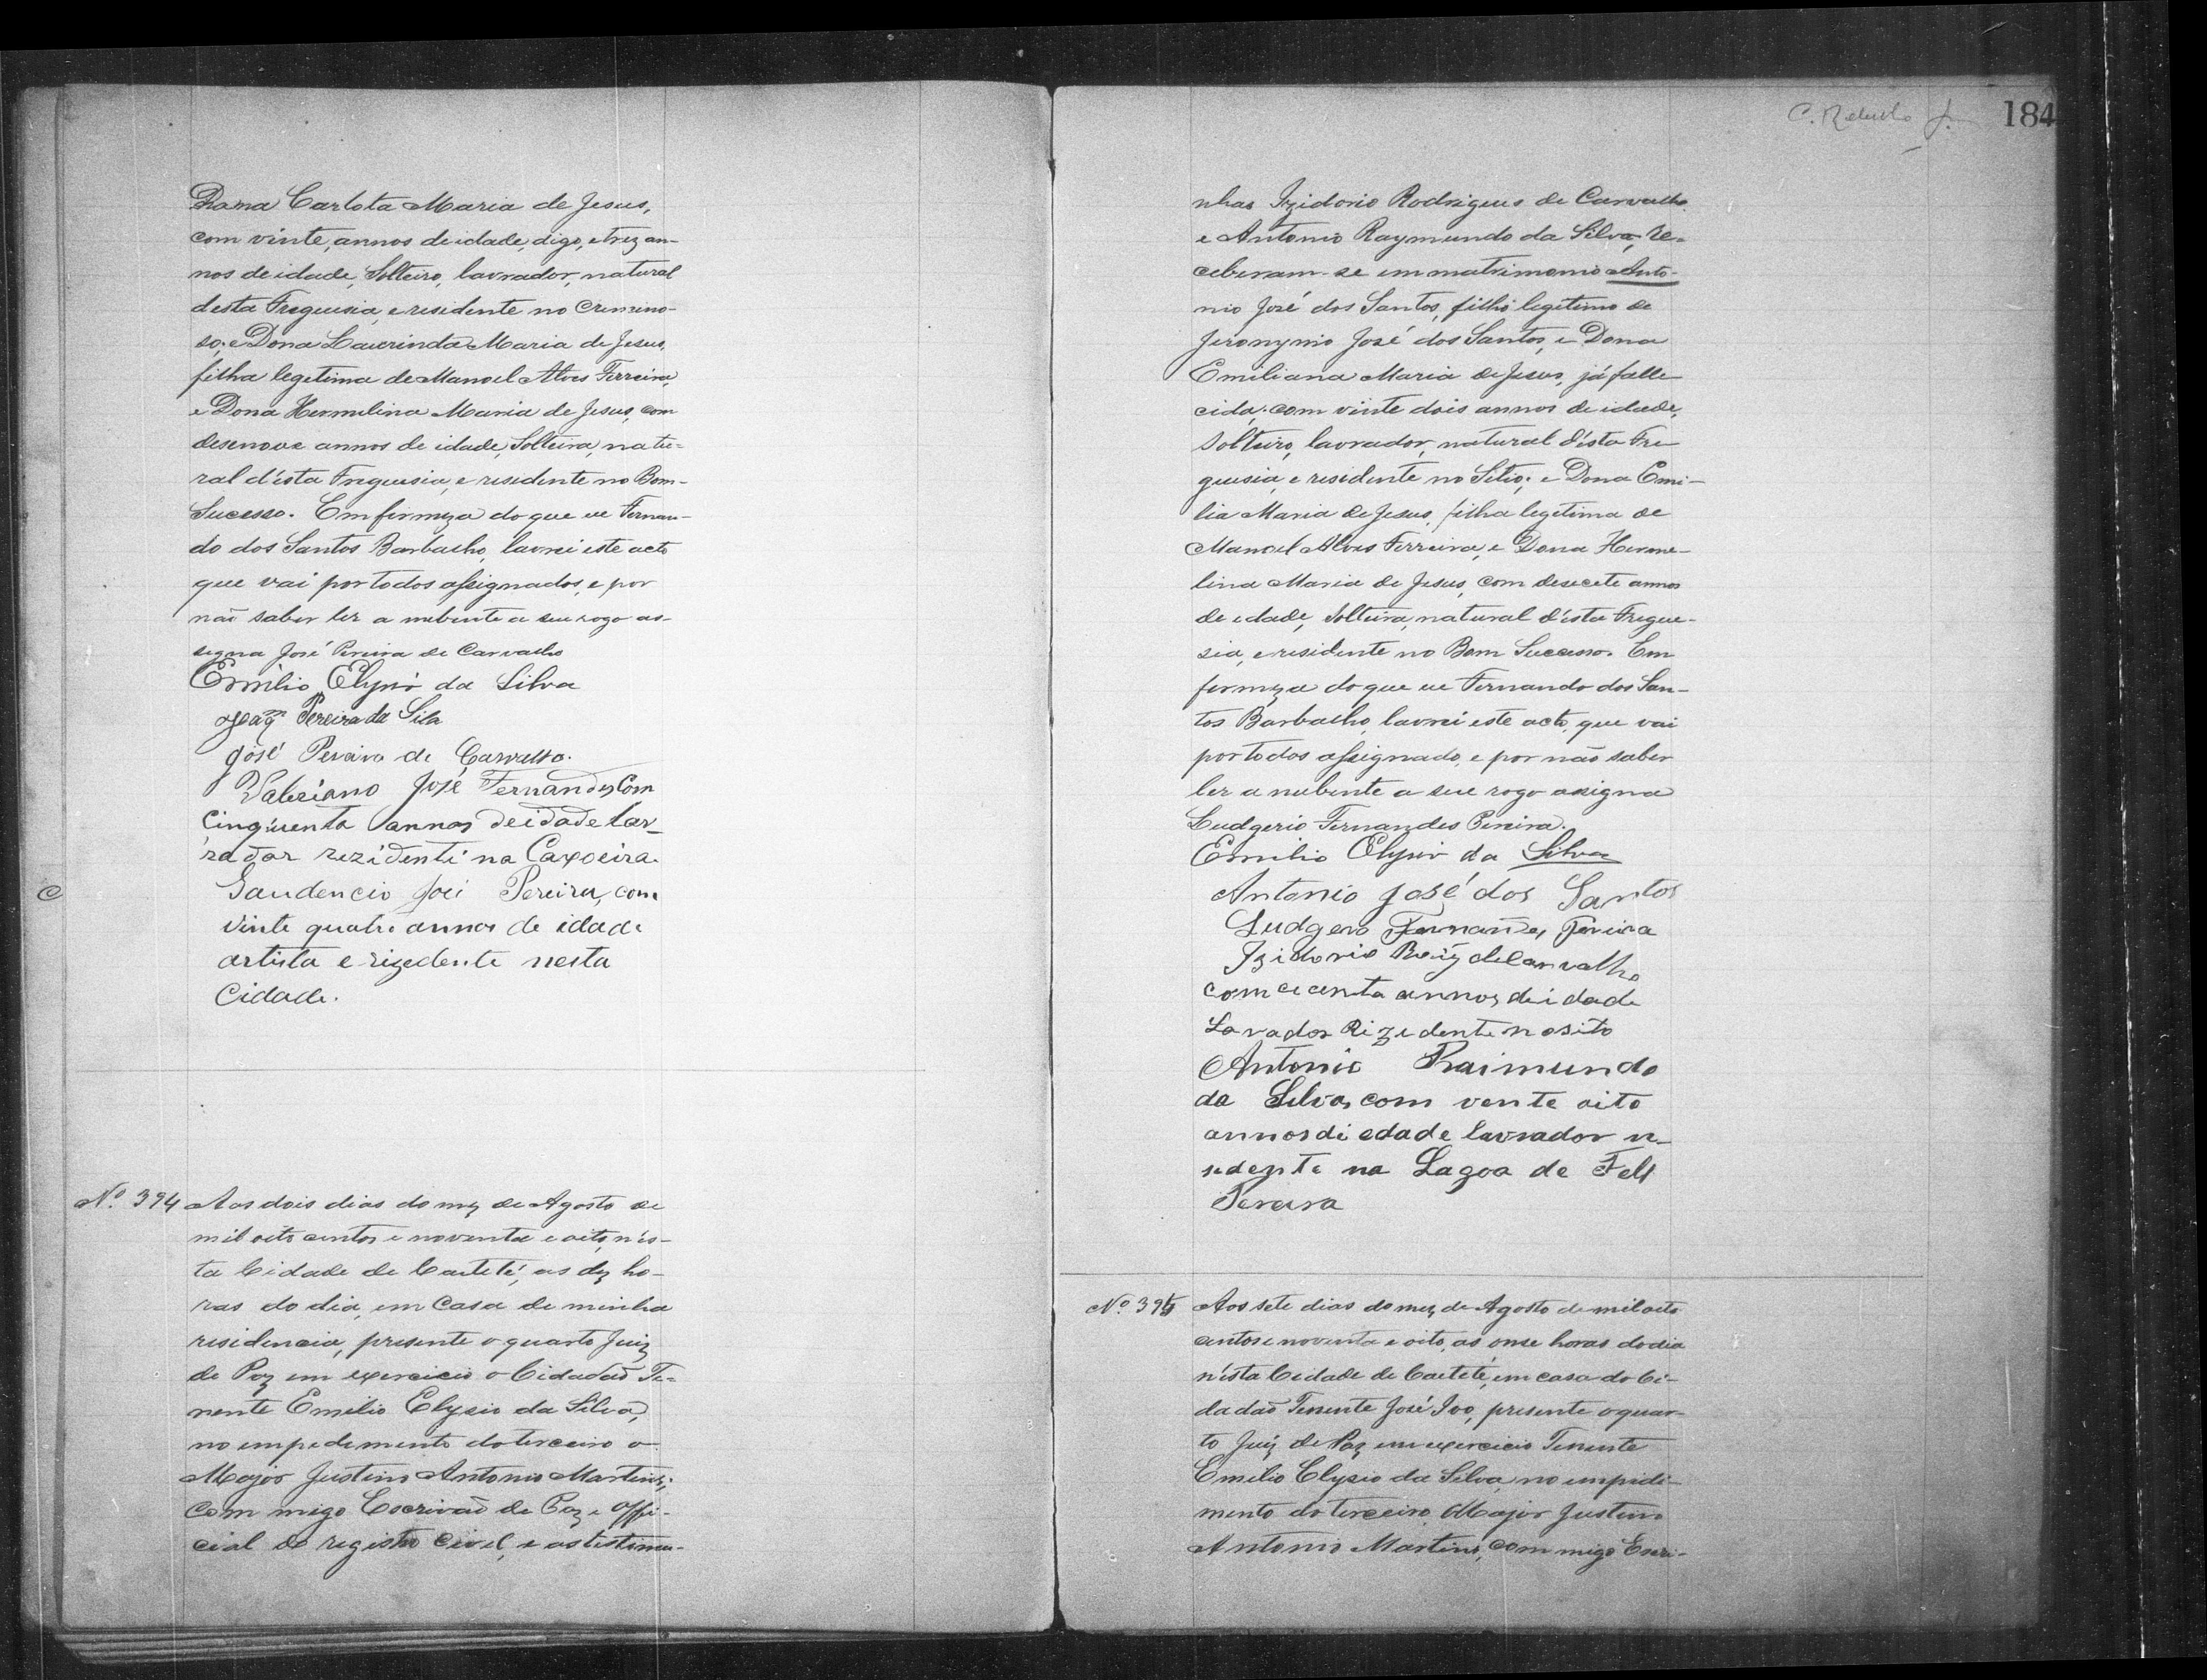 Dona Carlota Maria de Jesus,
com vinte, annos de idade, digo, e trez an-
nos de idade, Solteiro, lavrador, natural
desta Freguesia, e residente no Crimino-
so; e Dona Laurinda Maria de Jesus,
filha legitima de Manoel Alves Ferreira,
e Dona Hermelina Maria de Jesus, com
desenove annos de idade, Solteira, natu-
ral d'ésta Freguesia, e residente no Bom-
Sucesso. Em firmeza do que eu Fernan-
do dos Santos Barbalho, lavrei este acto
que vai por todos assignados, e por
não saber ler a nubente a seu rogo as-
signa José Pereira de Carvalho
Emilio Elysio da Silva
Joaqm Pereira da Sila
José Pereira de Carvalho.
Valeriano José Fernandes Com
Cinqüenta annos de idade lav-
rador rezidenti na Caxoeira.
Gaudencio José Pereira, com
vinte quatro annos de idade
artista e rizedente nesta
Cidade.
No. 394 Aos dois dias do mez de Agosto de
mil oito centos e noventa e oito, nés-
ta Cidade de Caeteté, as dez ho-
ras do dia, em Casa de minha
residencia, presente o quarto Juiz
de Paz em exercicio o Cidadaõ Te-
nente Emilio Elysio da Silva,
no empedimento do terceiro o
Major Justino Antonio Martins;
Com migo Escrivaõ de Paz e Offi-
cial do registro Civel, e as testimu-
184
nhas Izidorio Rodrigues de Carvalho
e Antonio Raymundo da Silva, re-
ceberam-se em matrimonio Anto-
nio José dos Santos, filho legitimo de
Jeronymo José dos Santos, e Dona
Emiliana Maria de Jesus, já falle-
cida; com vinte dois annos de idade,
Solteiro, lavrador, natural d'ésta Fre-
guesia, e residente no Sitio; e Dona Emi-
lia Maria de Jesus, filha legitima de
Manoel Alves Ferreira, e Dona Herme-
lina Maria de Jesus, com desecete annos
de idade, Solteira, natural d'ésta Fregue-
sia, e residente no Bom Sucesso. Em
firmeza do que eu Fernando dos San-
tos Barbalho, lavrei este acto, que vai
por todos assignado, e por não saber
ler a nubente a seu rogo asigna
Ludgerio Fernandes Pereira.
Emilio Elysio da Silva
Antonio José dos Santos
Ludgero Fernandes Pereira
Izidorio Roiz de Carvalho
com cecenta annos de idade
Lavador Rizedente no sito
Antonio Raimundo
da Silva, com vente oito
annos di edade lavrador re-
sedente na Lagoa de Feli
Pereira
No. 395 Aos sete dias do mez de Agosto de mil oito
centos e noventa e oito, as onse horas do dia
n'ésta Cidade de Caeteté, em casa do Ci-
dadaõ Tenente José Ivo, presente o quar-
to Juiz de Paz em exercicio Tenente
Emilio Elysio da Silva, no empidi-
mento do terceiro Major Justino
Antonio Martins, Com migo Escri-